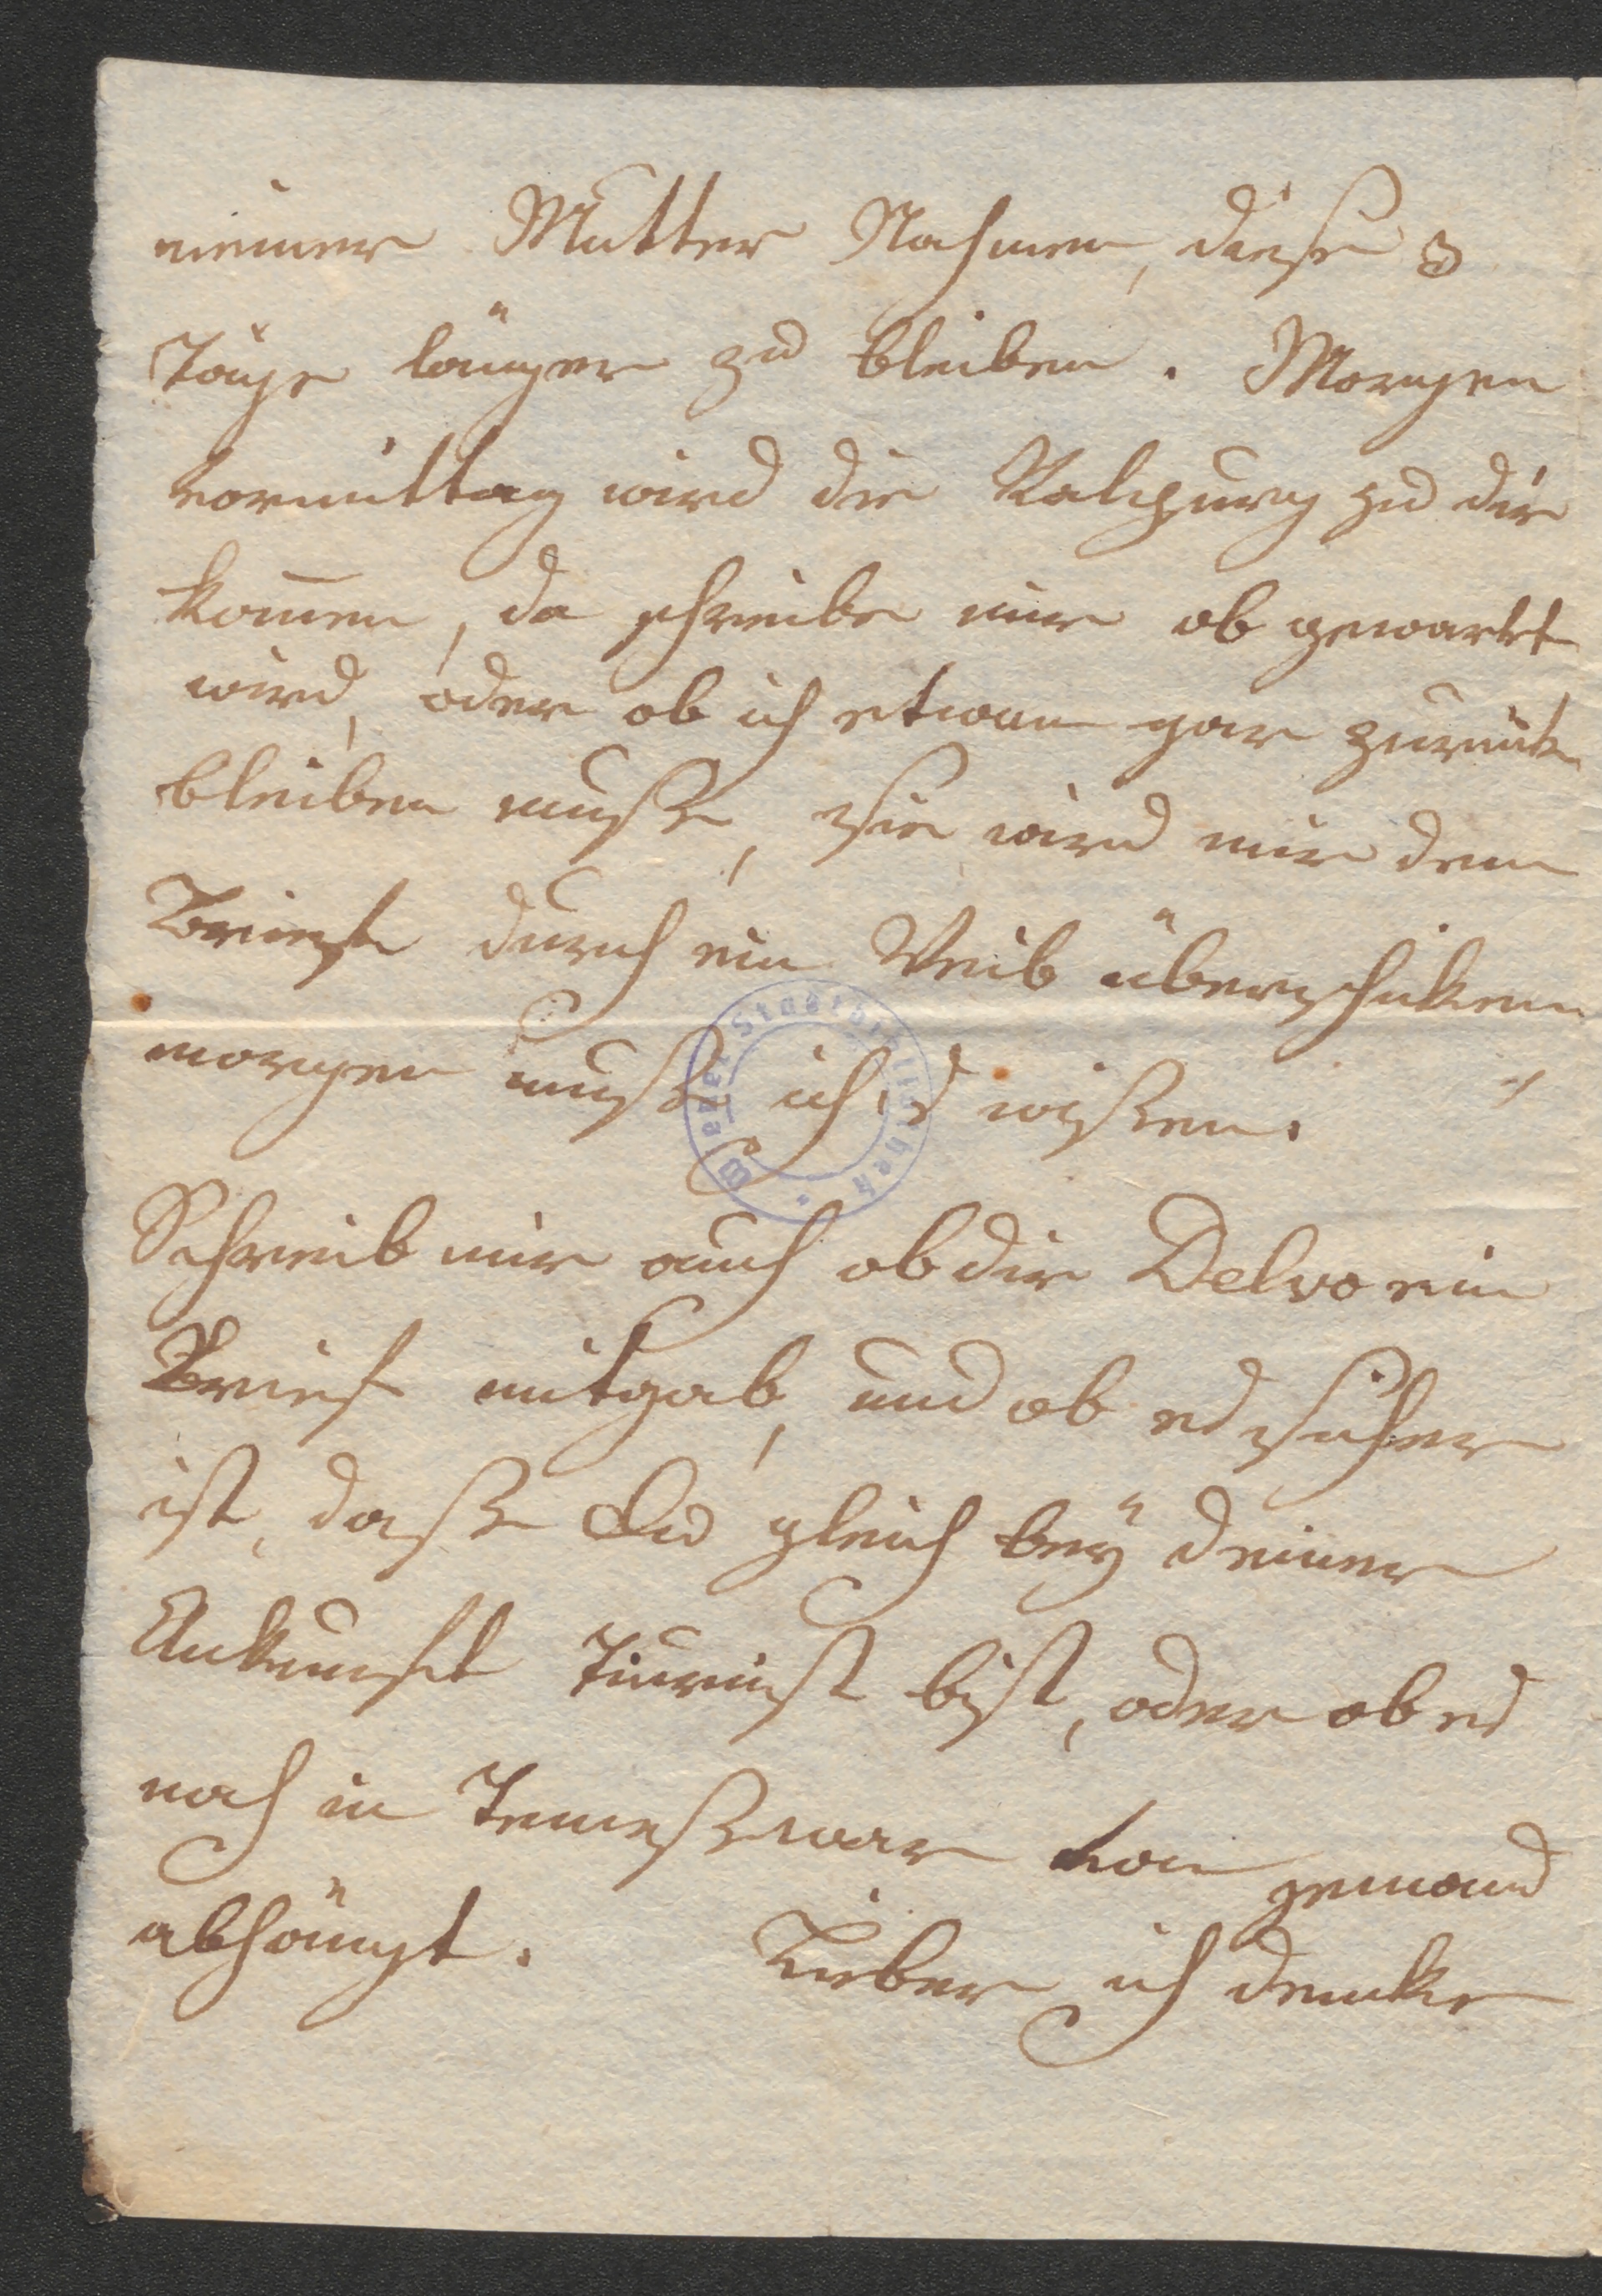 meiner Mutter Nahmen, diese 3
Täge länger zu bleiben. Morgen
vormittag wird die Kalzburg zu dir
kom̄en, da schreibe mir ob gewartet
wird, oder ob ich etwan gar zurük
bleiben muße, sie wird mir den
Briefe durch ein Weib überschiken
morgen muße ich's wißen.
Schreib mir auch ob dir Delvo ein
Brief mitgab, und ob es sicher
ist, daße Du gleich beÿ deiner
Ankunft Jurist bist, oder ob es
noch in Temeßwar von jemand
abhängt. Lieber ich denke
Wiener Stadtbibliothek